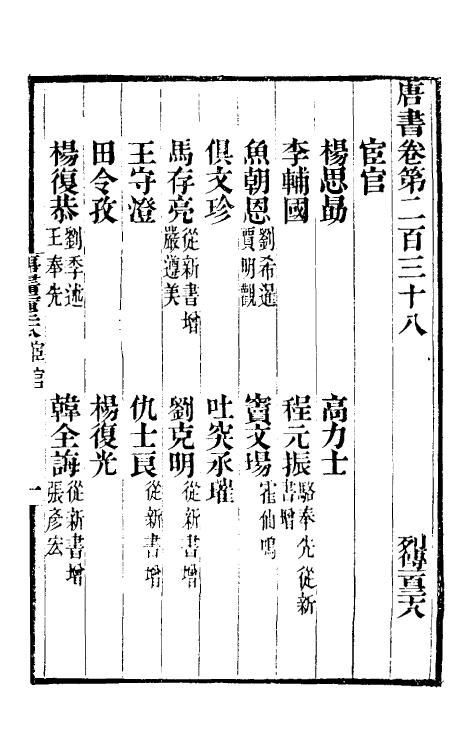 唐書卷第二百三十八 列傳一百六十六
宦官
楊思勗 高力士
李輔國 程元振 駱奉先從新書增
魚朝恩 劉希暹 賈明觀 竇文場 霍仙鳴
俱文珍 吐突承璀
馬存亮 從新書增 嚴遵美 劉克明 從新書增
王守澄 仇士良 從新書增
田令孜 楊復光
楊復恭 劉季述 王奉先 韓全誨 從新書增 張彥宏
宦官 一